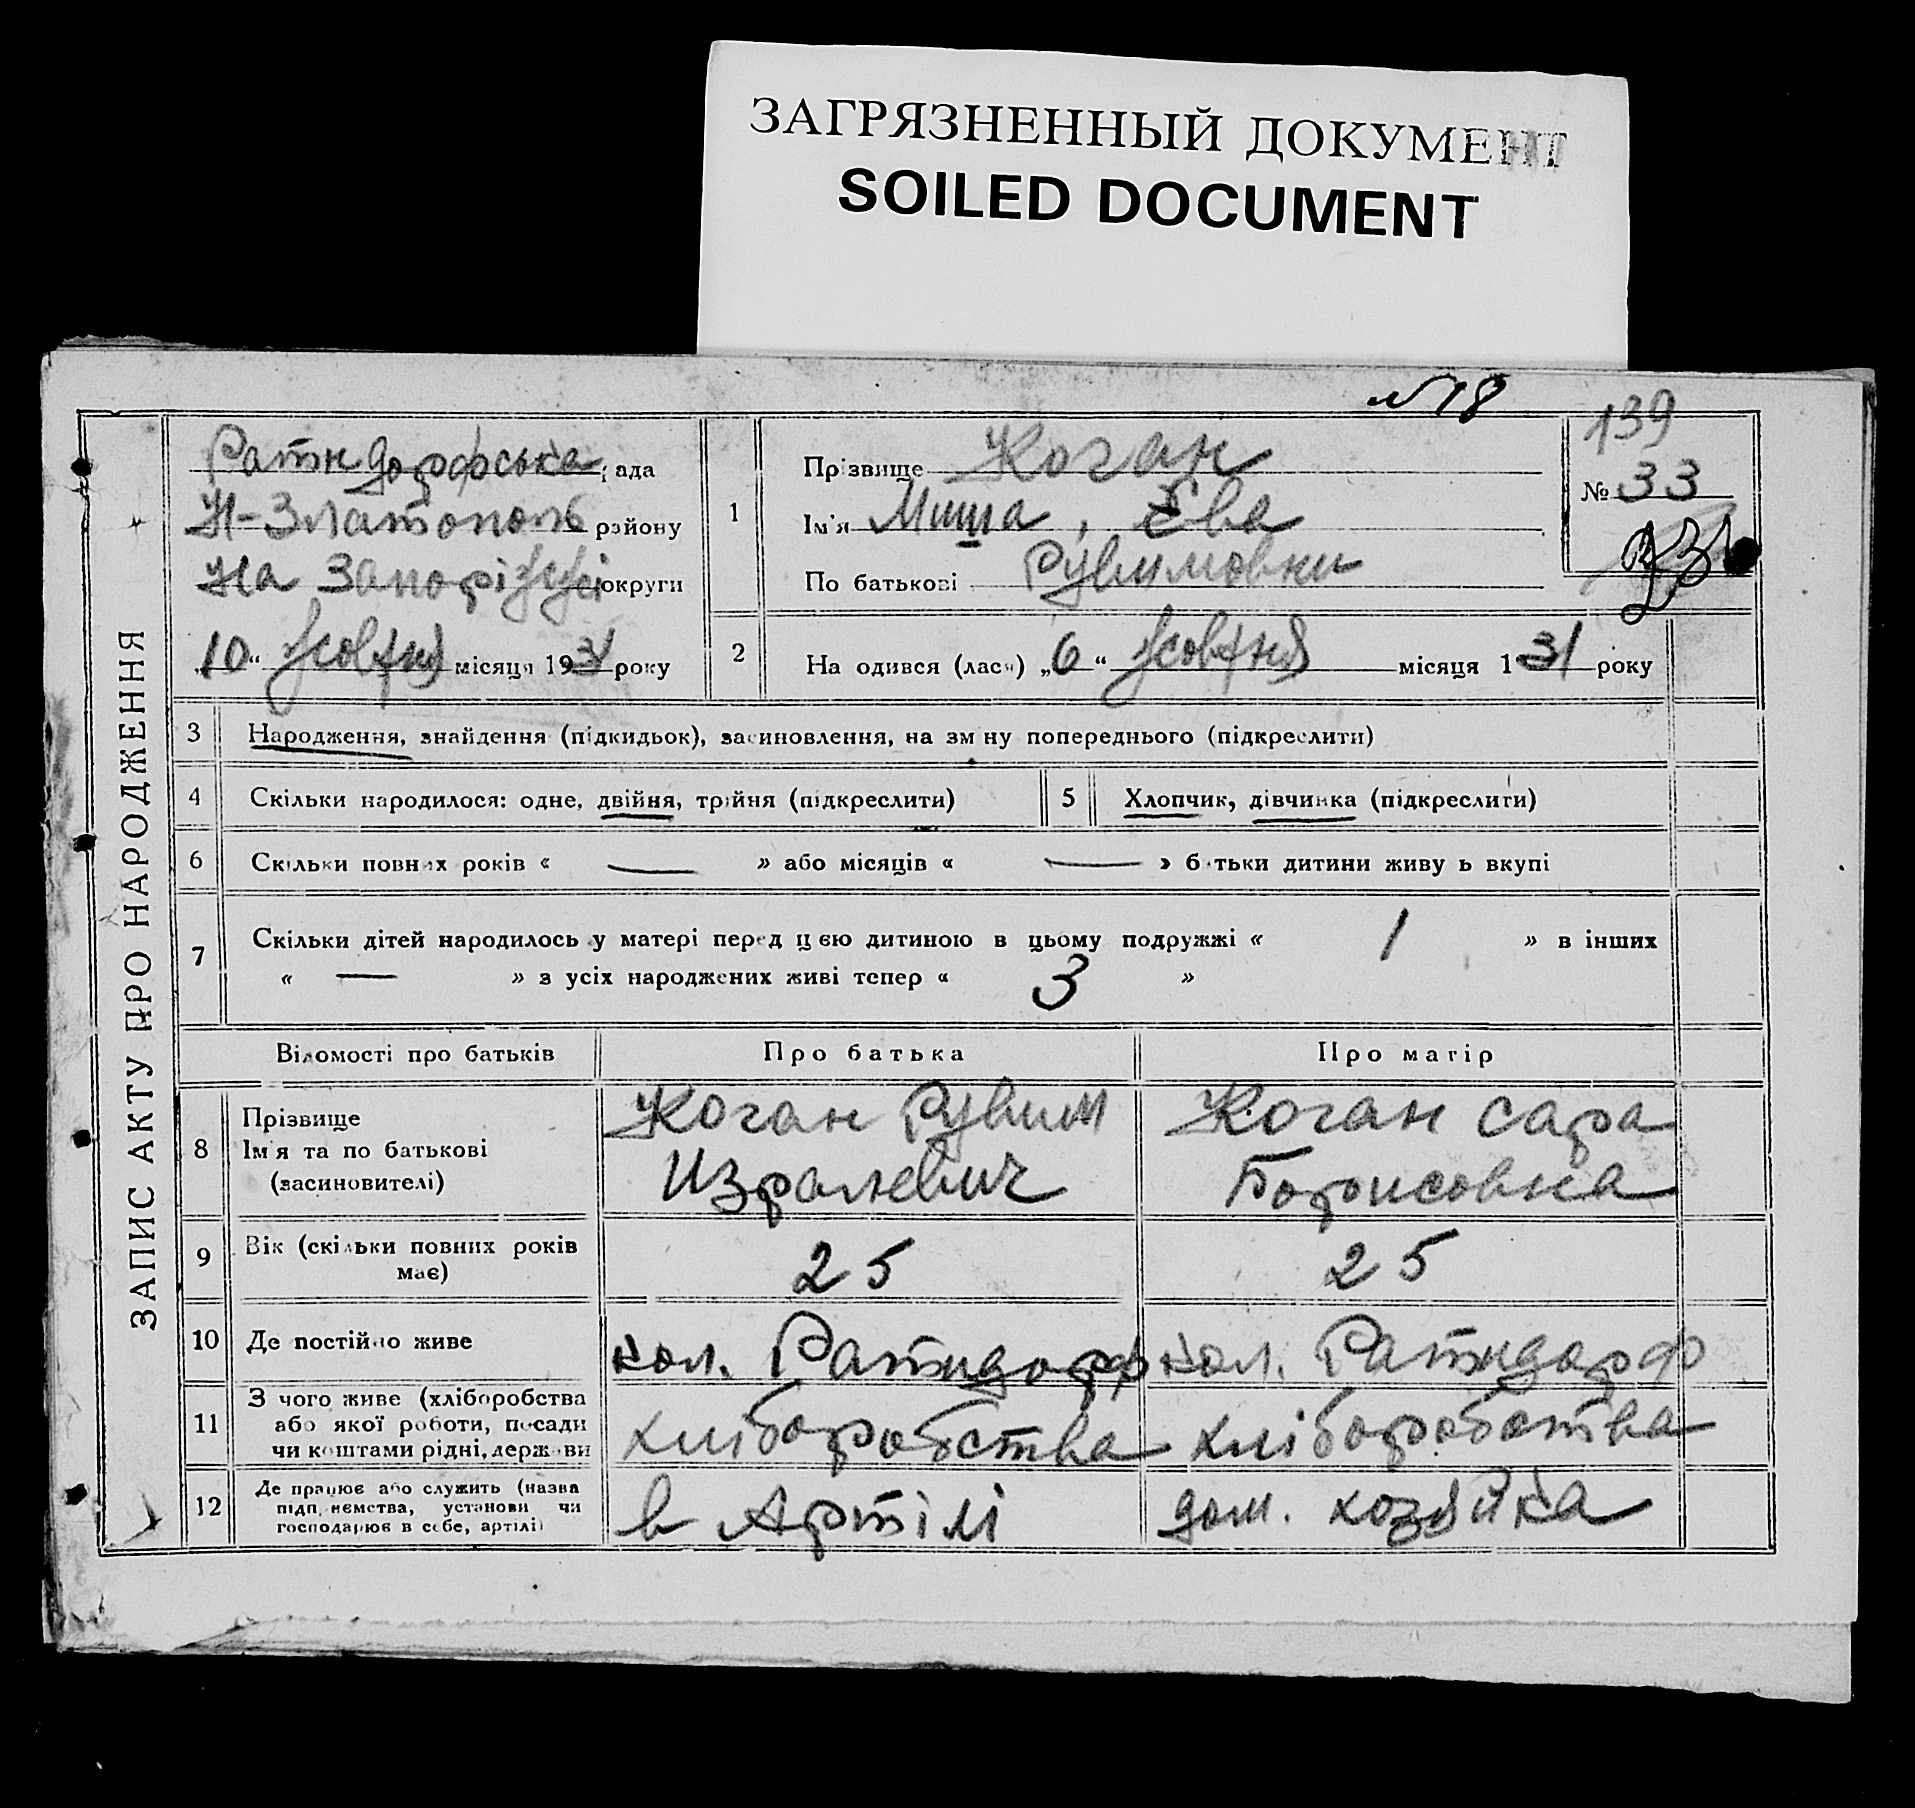 ЗАГРЯЗНЕННЫЙ ДОКУМЕНТ
SOILED DOCUMENT
№ 18
139
№ 33
ЗАПИС АКТУ ПРО НАРОДЖЕННЯ
Ратндорфська рада
Н-Златополь району
На Запоріжжі округи
„10“ жовтня місяця 1931 року
1
Прізвище Коган
Ім'я Миша, Ева
По батькові Рувимовни
2
Народився (лася) „6“ жовтня місяця 131 року
3 Народження, знайдення (підкидьок), засиновлення, на зміну попереднього (підкреслити)
4 Скільки народилося: одне, двійня, трійня (підкреслити)
5 Хлопчик, дівчинка (підкреслити)
6 Скільки повних років « — » або місяців « — » батьки дитини живуть вкупі
7 Скільки дітей народилось у матері перед цією дитиною в цьому подружжі « 1 » в інших
« — » з усіх народжених живі тепер « 3 »
Відомості про батьків Про батька Про матір
8 Прізвище
Ім'я та по батькові
(засиновителі)
Коган Рувим
Изралевич
Коган Сара
Борисовна
9 Вік (скільки повних років
має)
25
25
10 Де постійно живе
кол. Ратндорф
кол. Ратндорф
11 З чого живе (хліборобства
або якої роботи, посади
чи коштами рідні, держави
хліборобства
хліборобства
12 Де працює або служить (назва
підприємства, установи чи
господарює в себе, артілі)
в Артілі
дом. хозяйка